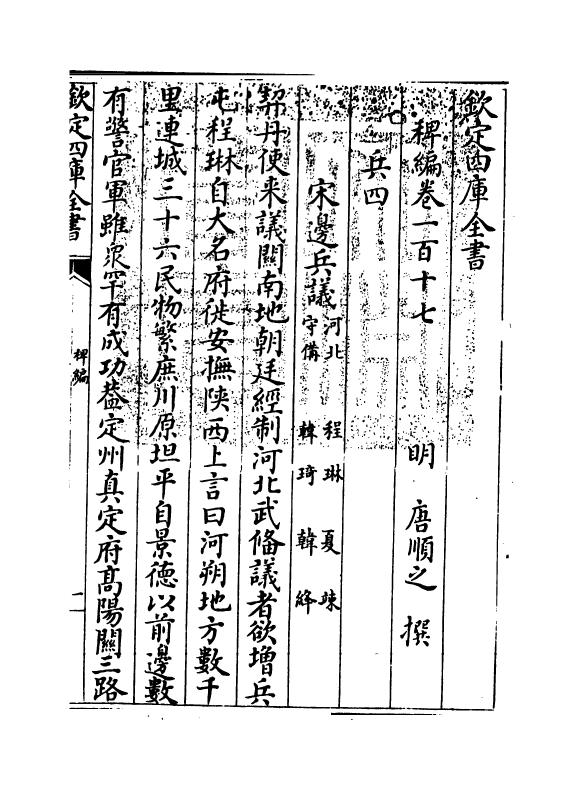 欽定四庫全書
稗編卷一百十七
明 唐順之 撰
兵四
宋邊兵議 河北守備 程琳 夏竦 韓琦 韓絳
契丹使来議關南地朝廷經制河北武備議者欲增兵
屯程琳自大名府徙安撫陝西上言曰河朔地方數千
里連城三十六民物繁庶川原坦平自景德以前邊數
有警官軍雖衆罕有成功葢定州真定府髙陽關三路
欽定四庫全書
稗編
二